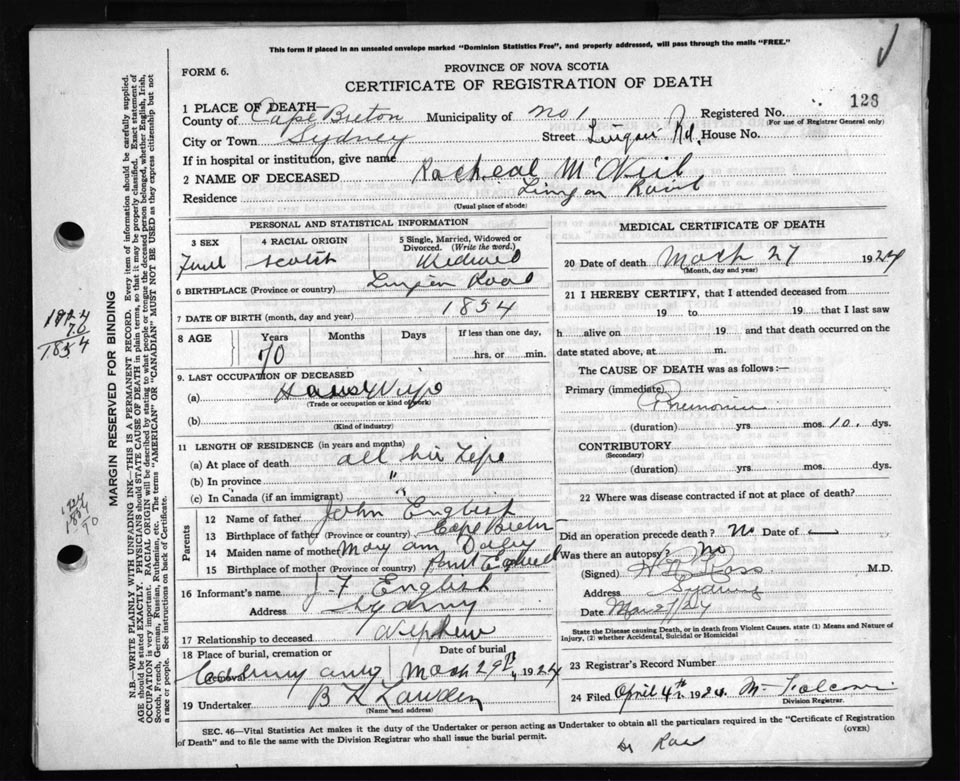 This form if placed in an unsealed envelope marked "Dominion Statistics Free", and properly addressed, will pass through the mails "FREE."
FORM 6.
PROVINCE OF NOVA SCOTIA
CERTIFICATE OF REGISTRATION OF DEATH
1 PLACE OF DEATH—
County of Cape Breton Municipality of No 1 Registered No. 126
(For use of Registrar General only)
City or Town Sydney Street Lingan Rd. House No.
If in hospital or institution, give name
2 NAME OF DECEASED Racheal McNeil
Residence Lingan Road
(Usual place of abode)
PERSONAL AND STATISTICAL INFORMATION
3 SEX 4 RACIAL ORIGIN 5 Single, Married, Widowed or Divorced. (Write the word.)
Scotch
6 BIRTHPLACE (Province or country) Lingan Road
7 DATE OF BIRTH (month, day and year) 1854
8 AGE Years Months Days If less than one day,
70 hrs. or min.
9. LAST OCCUPATION OF DECEASED
(a) House Wife
(Trade or occupation or kind of work)
(b)
(Kind of industry)
11 LENGTH OF RESIDENCE (in years and months)
(a) At place of death all her Life
(b) In province "
(c) In Canada (if an immigrant) "
Parents
12 Name of father John English
13 Birthplace of father (Province or country) Cape Breton
14 Maiden name of mother Mary Ann
15 Birthplace of mother (Province or country)
16 Informant's name J-F English
Address Sydney
17 Relationship to deceased Nephew
18 Place of burial, cremation or removal Date of burial
March 29th, 1924
19 Undertaker B L
(Name and address)
MEDICAL CERTIFICATE OF DEATH
20 Date of death March 27 1924
(Month, day and year)
21 I HEREBY CERTIFY, that I attended deceased from
19 to 19 that I last saw
h alive on 19 and that death occurred on the
date stated above, at m.
The CAUSE OF DEATH was as follows:—
Primary (immediate) Pnemonia
(duration) yrs. mos. 10. dys.
CONTRIBUTORY
(Secondary)
(duration) yrs. mos. dys.
22 Where was disease contracted if not at place of death?
Did an operation precede death? No Date of —
Was there an autopsy? No
(Signed) Ross M.D.
Address Sydney
Date Mar 27/24
State the Disease causing Death, or in death from Violent Causes, state (1) Means and Nature of
Injury, (2) whether Accidental, Suicidal or Homicidal
23 Registrar's Record Number
24 Filed April 4th 1924.
Division Registrar.
SEC. 46—Vital Statistics Act makes it the duty of the Undertaker or person acting as Undertaker to obtain all the particulars required in the "Certificate of Registration
of Death" and to file the same with the Division Registrar who shall issue the burial permit.
(OVER)
Dr Ross
MARGIN RESERVED FOR BINDING
N.B.—WRITE PLAINLY WITH UNFADING INK—THIS IS A PERMANENT RECORD. Every item of information should be carefully supplied.
AGE should be stated EXACTLY. PHYSICIANS should STATE CAUSE OF DEATH in plain terms, so that it may be properly classified. Exact statement of
OCCUPATION is very important. RACIAL ORIGIN will be described by stating to what people or tongue the deceased person belonged, whether English, Irish,
Scotch, French, German, Russian, Ruthenian, etc. The terms "AMERICAN" or "CANADIAN" MUST NOT BE USED as they express citizenship but not
a race or people. See instructions on back of Certificate.
1924
70
1854
1924
1854
70